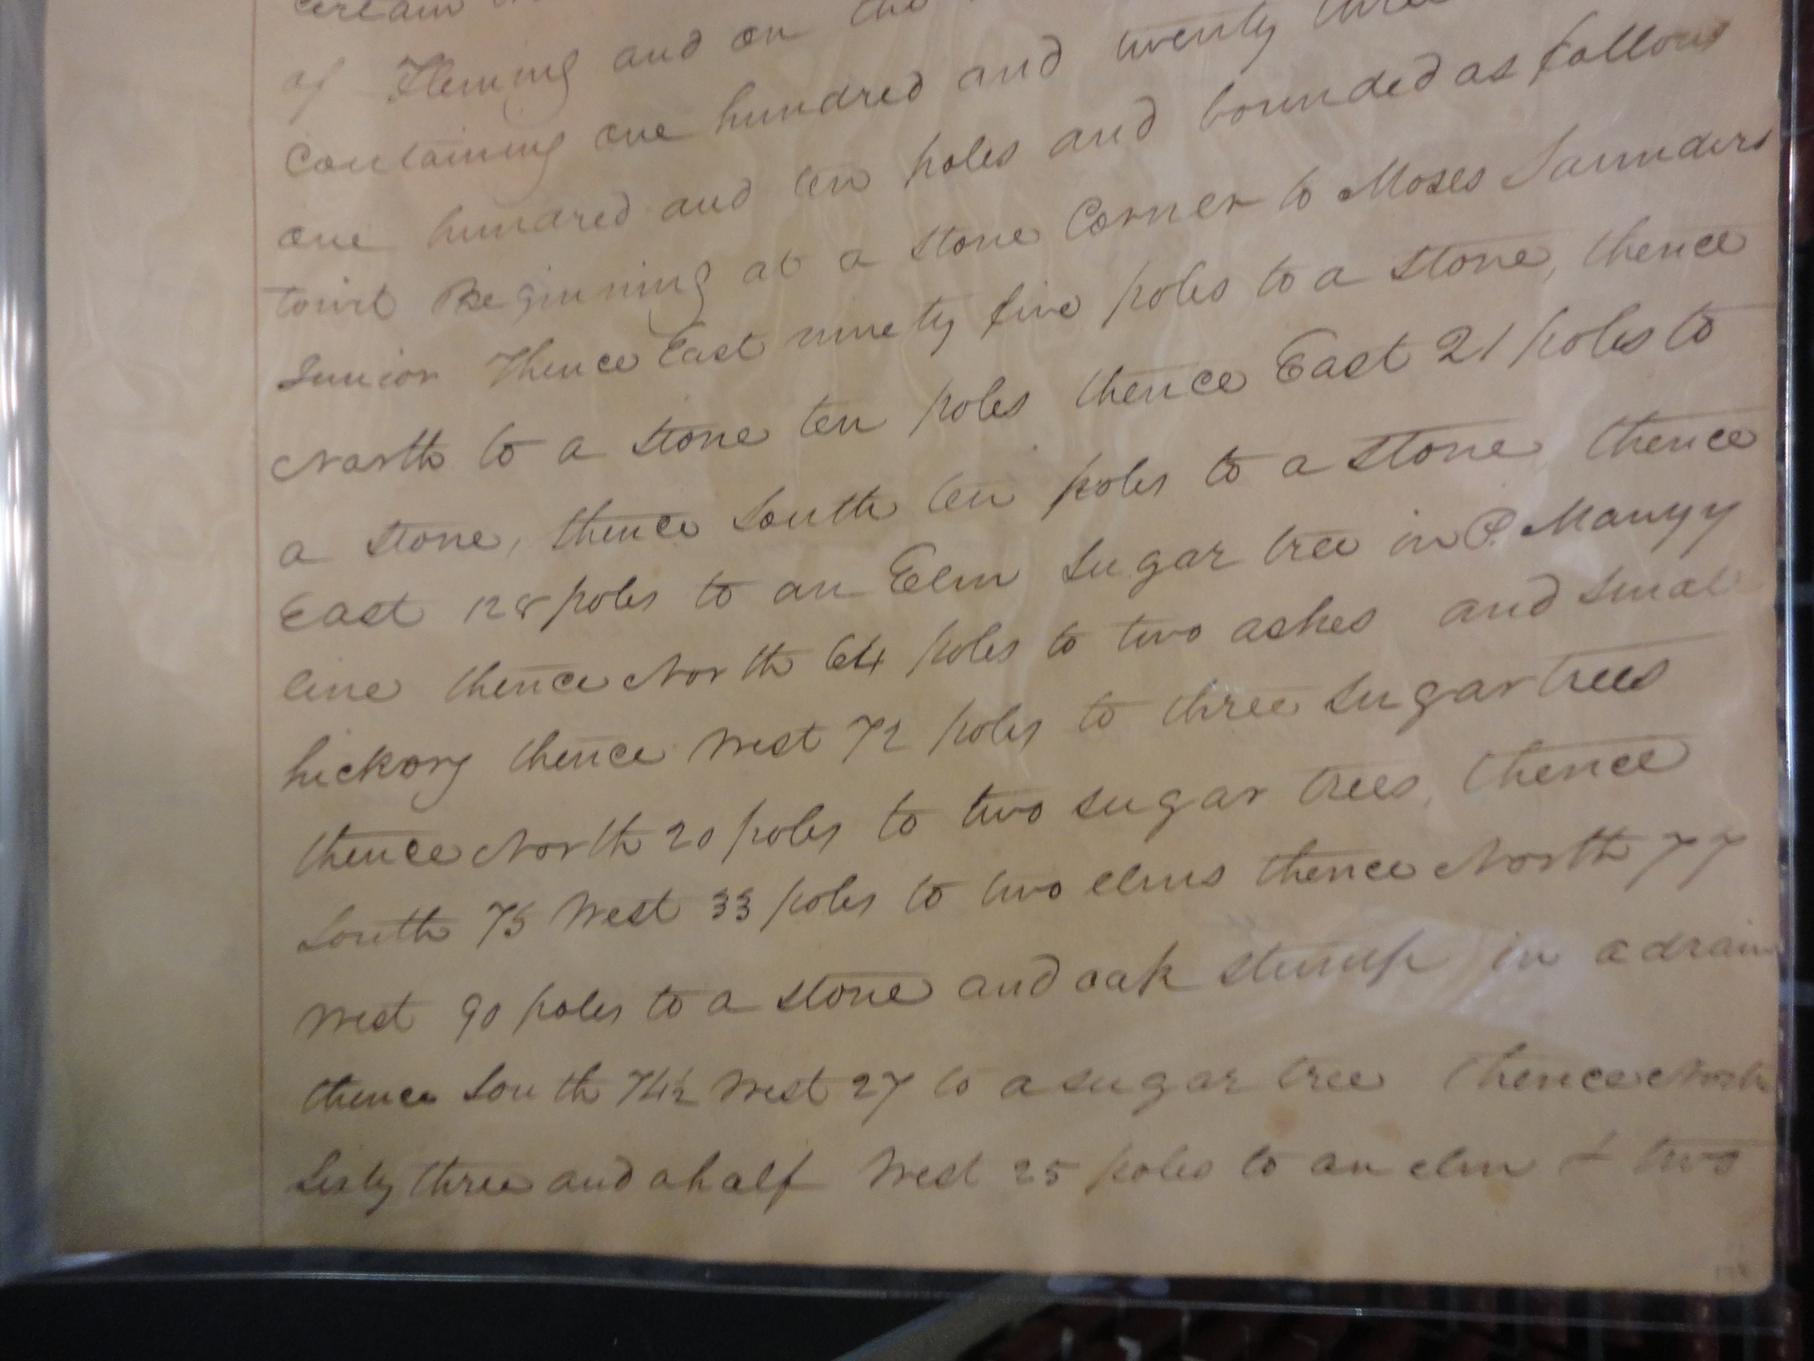 certain
of Fleming and on the
Containing one hundred and twenty three
one hundred and ten poles and bounded as follows
towit Beginning at a stone Corner to Moses Saunders
Junior Thence East ninety five poles to a stone, thence
North to a stone ten poles thence East 21 poles to
a stone, thence South ten poles to a stone thence
East 128 poles to an Elm Sugar tree in P. Mauzy
line thence North 64 poles to two ashes and Smal
hickory thence West 72 poles to three Sugar trees
thence North 20 poles to two sugar trees, thence
South 75 West 33 poles to two elms thence North 77
West 90 poles to a stone and oak stump in a drain
thence South 74½ West 27 to a sugar tree thence North
Sixty three and a half West 25 poles to an elm & two